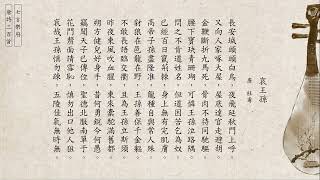 哀王孫
唐 杜甫
長安城頭頭白烏 夜飛延秋門上呼
又向人家啄大屋 屋底達官走避胡
金鞭斷折九馬死 骨肉不待同馳驅
腰下寶玦青珊瑚 可憐王孫泣路隅
問之不肯道姓名 但道困苦乞為奴
已經百日竄荊棘 身上無有完肌膚
高帝子孫盡隆準 龍種自與常人殊
豺狼在邑龍在野 王孫善保千金軀
不敢長語臨交衢 且為王孫立斯須
昨夜東風吹血腥 東來橐駝滿舊都
朔方健兒好身手 昔何勇銳今何愚
竊聞天子已傳位 聖德北服南單于
花門剺面請雪恥 慎勿出口他人狙
哀哉王孫慎勿疏 五陵佳氣無時無
七言樂府
唐詩三百首